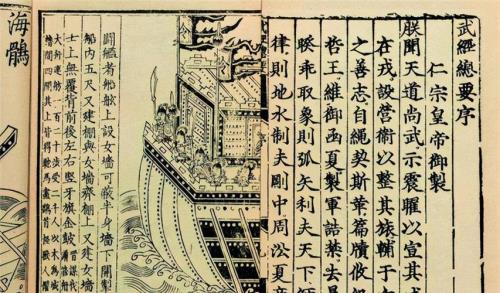 武經總要序
仁宗皇帝御製
朕聞天道尚武示震曜以宣其
在戎設營衛以整其旅輔于
之善志自繩契斯華篇牘攸
哲王維御函夏製軍誥禁去
睽乘取象則弧矢利夫天下
律則地水制夫剛中周訟夏
鬬艦者船舷上設女墻可蔽半身墻下開掣
船內五尺又建棚與女墻齊棚上又建女墻
士上無覆背前後左右竪牙旗金鼓
海鶻